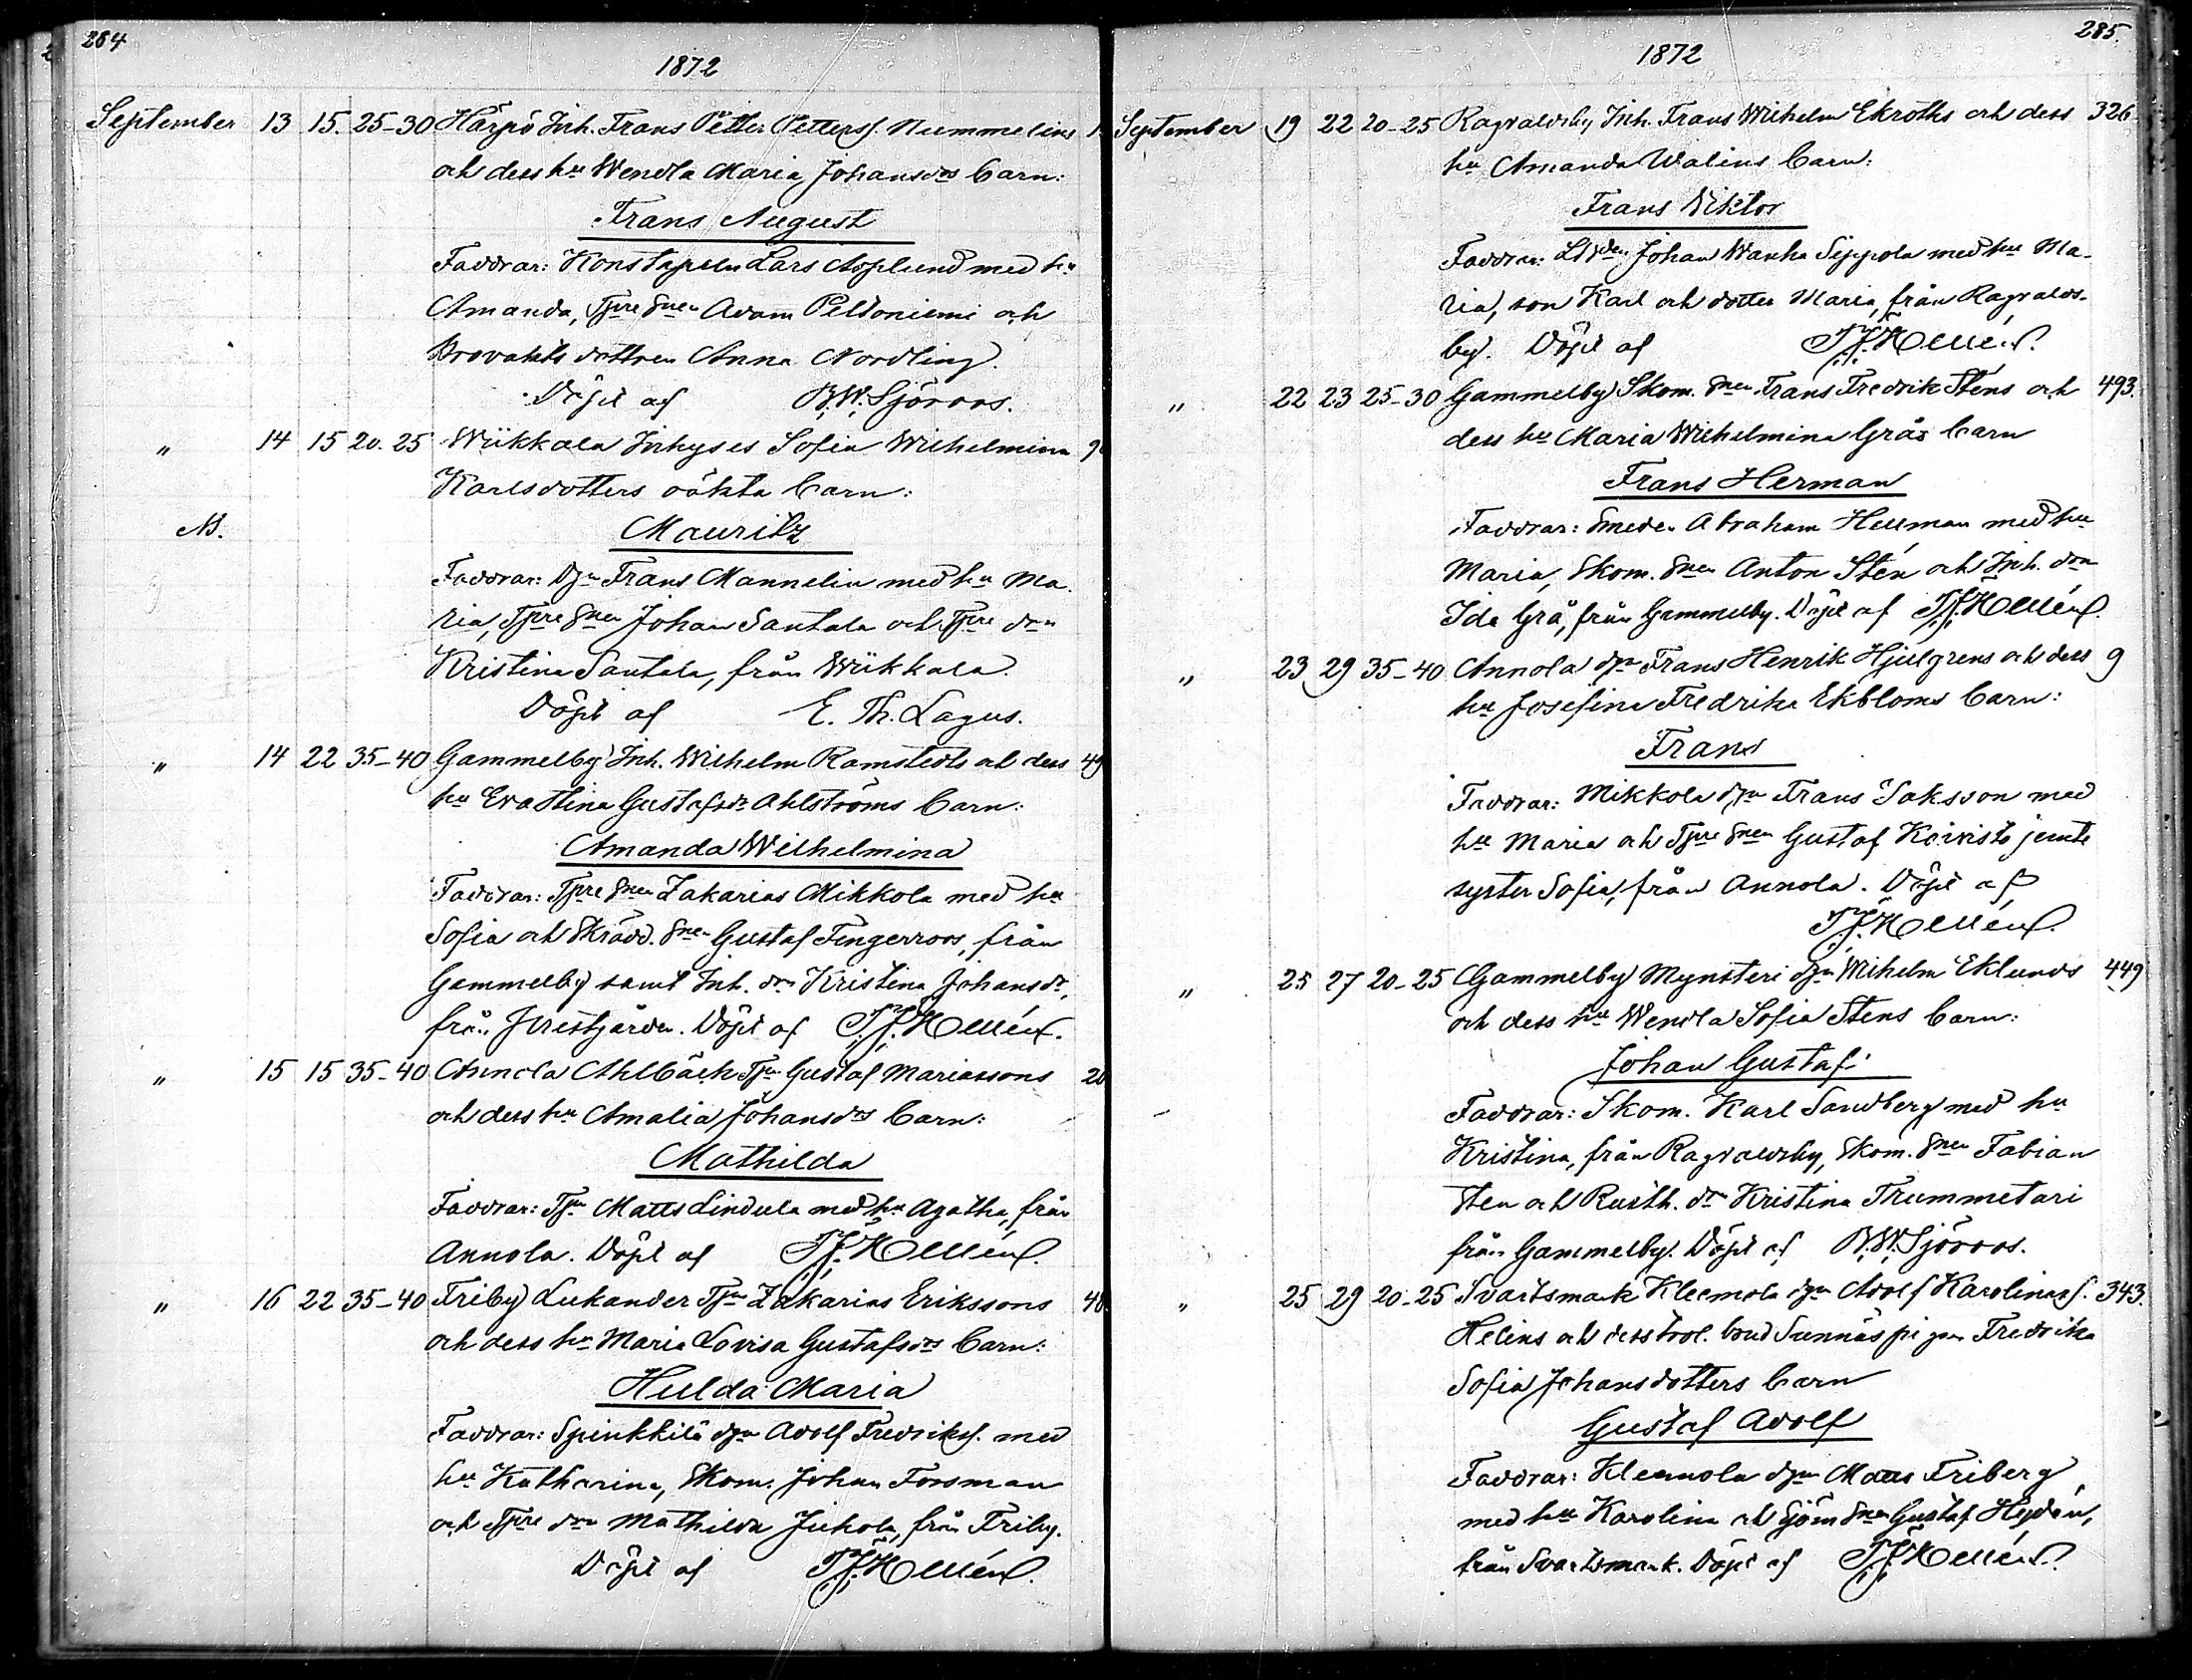 284
1872
September 13 15. 25-30 Härpö Inh. Frans Petter Petterss. Nummelins
och dess hu Wendla Maria Johansdrs barn:
Frans August
Faddrar: Konstapeln Lars Asplund med hu
Amanda, Tjre Snen Adam Peltoniemi och
dottren Anna Nordling.
Döpt af B. W. Sjöroos.
" 14 15 20. 25 Wiikkala Inhyses Sofia Wilhelmina
Karlsdotters oäkta barn:
N.
Mauritz
Faddrar: Dgn Frans Mannelin med hu Ma-
ria, Tjre Snen Johan Santala och Tjre drn
Kristina Santala, från Wiikkala.
Döpt af E. Th. Lagus.
" 14 22 35-40 Gammelby Inh. Wilhelm Ramstedts och dess 49
hu Eva Stina Gustafsdr Ahlströms barn:
Amanda Wilhelmina
Faddrar: Tjre Snen Zakarias Mikkola med hu
Sofia och Skrädd. Snen Gustaf Fingerroos, från
Gammelby samt Inh. drn Kristina Johansdr,
från Prestgården. Döpt af T. J. Hollmén.
" 15 15 35-40 Annola Ahlbäck Tjn Gustaf Mariassons
och dess hu Amalia Johansdrs barn:
Mathilda
Faddrar: Tjn Matts Lindula med hu Agatha, från
Annola. Döpt af T. J. Hollmén.
" 16 22 35-40 Friby Lukander Tjn Zakarias Erikssons
och dess hu Maria Lovisa Gustafsdrs barn:
Hulda Maria
Faddrar: Spinkkilä dgn Adolf Fredrikss. med
hu Katharina, Skom. Johan Forsman
och Tjre drn Mathilda Jukola, från Friby.
Döpt af T. J. Hollmén.
285.
1872
September 19 22 20-25 Ragvaldsby Inh. Frans Wilhelm Ekroths och dess 326
hu Amanda Walins barn:
Frans Viktor
Faddrar: Johan Wanha Seppola med hu Ma-
ria, son Karl och dotter Maria, från Ragvalds-
by. Döpt af T. J. Hollmén.
" 22 23 25-30 Gammelby Skom. Snen Frans Fredrik Stens och 493.
dess hu Maria Wilhelmina Grås barn
Frans Herman
Faddrar: Smeden Abraham Hellman med hu
Maria, Skom. Snen Anton Stén och Inh. drn
Ida Grå, från Gammelby. Döpt af T. J. Hollmén.
" 23 29 35-40 Annola dgn Frans Henrik Hjulgrens och dess 9
hu Josefina Fredrika Ekbloms barn:
Frans
Faddrar: Mikkola dgn Frans Isaksson med
hu Maria och Tjre Snen Gustaf Koivisto jemte
syster Sofia, från Annola. Döpt af
T. J. Hollmén.
" 25 27 20-25 Gammelby Mynsteri dgn Wilhelm Eklunds 449
och dess hu Wendla Sofia Stens barn:
Johan Gustaf
Faddrar: Skom. Karl Sandberg med hu
Kristina, från Ragvaldsby, Skom. Snen Fabian
Sten och Rusth. dr Kristina Trummetari
från Gammelby. Döpt af B. W. Sjöroos.
" 25 29 20-25 Svartsmark Kleemola dgn Adolf Karolinas s. 343.
Helins och dess trol. brud Sunnäs pigan Fredrika
Sofia Johansdotters barn
Gustaf Adolf
Faddrar: Kleemola dgn Matts Friberg
med hu Karolina och Sjöm Snen Gustaf Hydén,
från Svartsmark. Döpt af T. J. Hollmén.